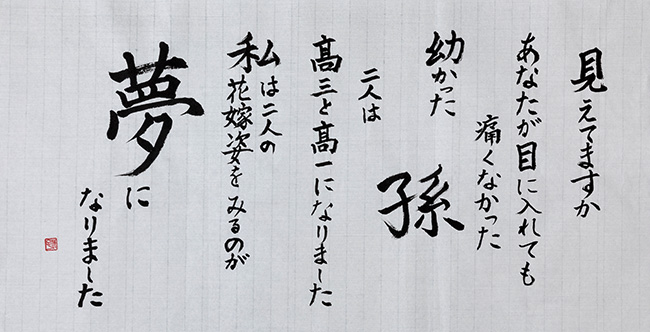 見えてますか
あなたが目に入れても
痛くなかった
幼かった
孫
二人は
高三と高一になりました
私は二人の
花嫁姿をみるのが
夢に
なりました